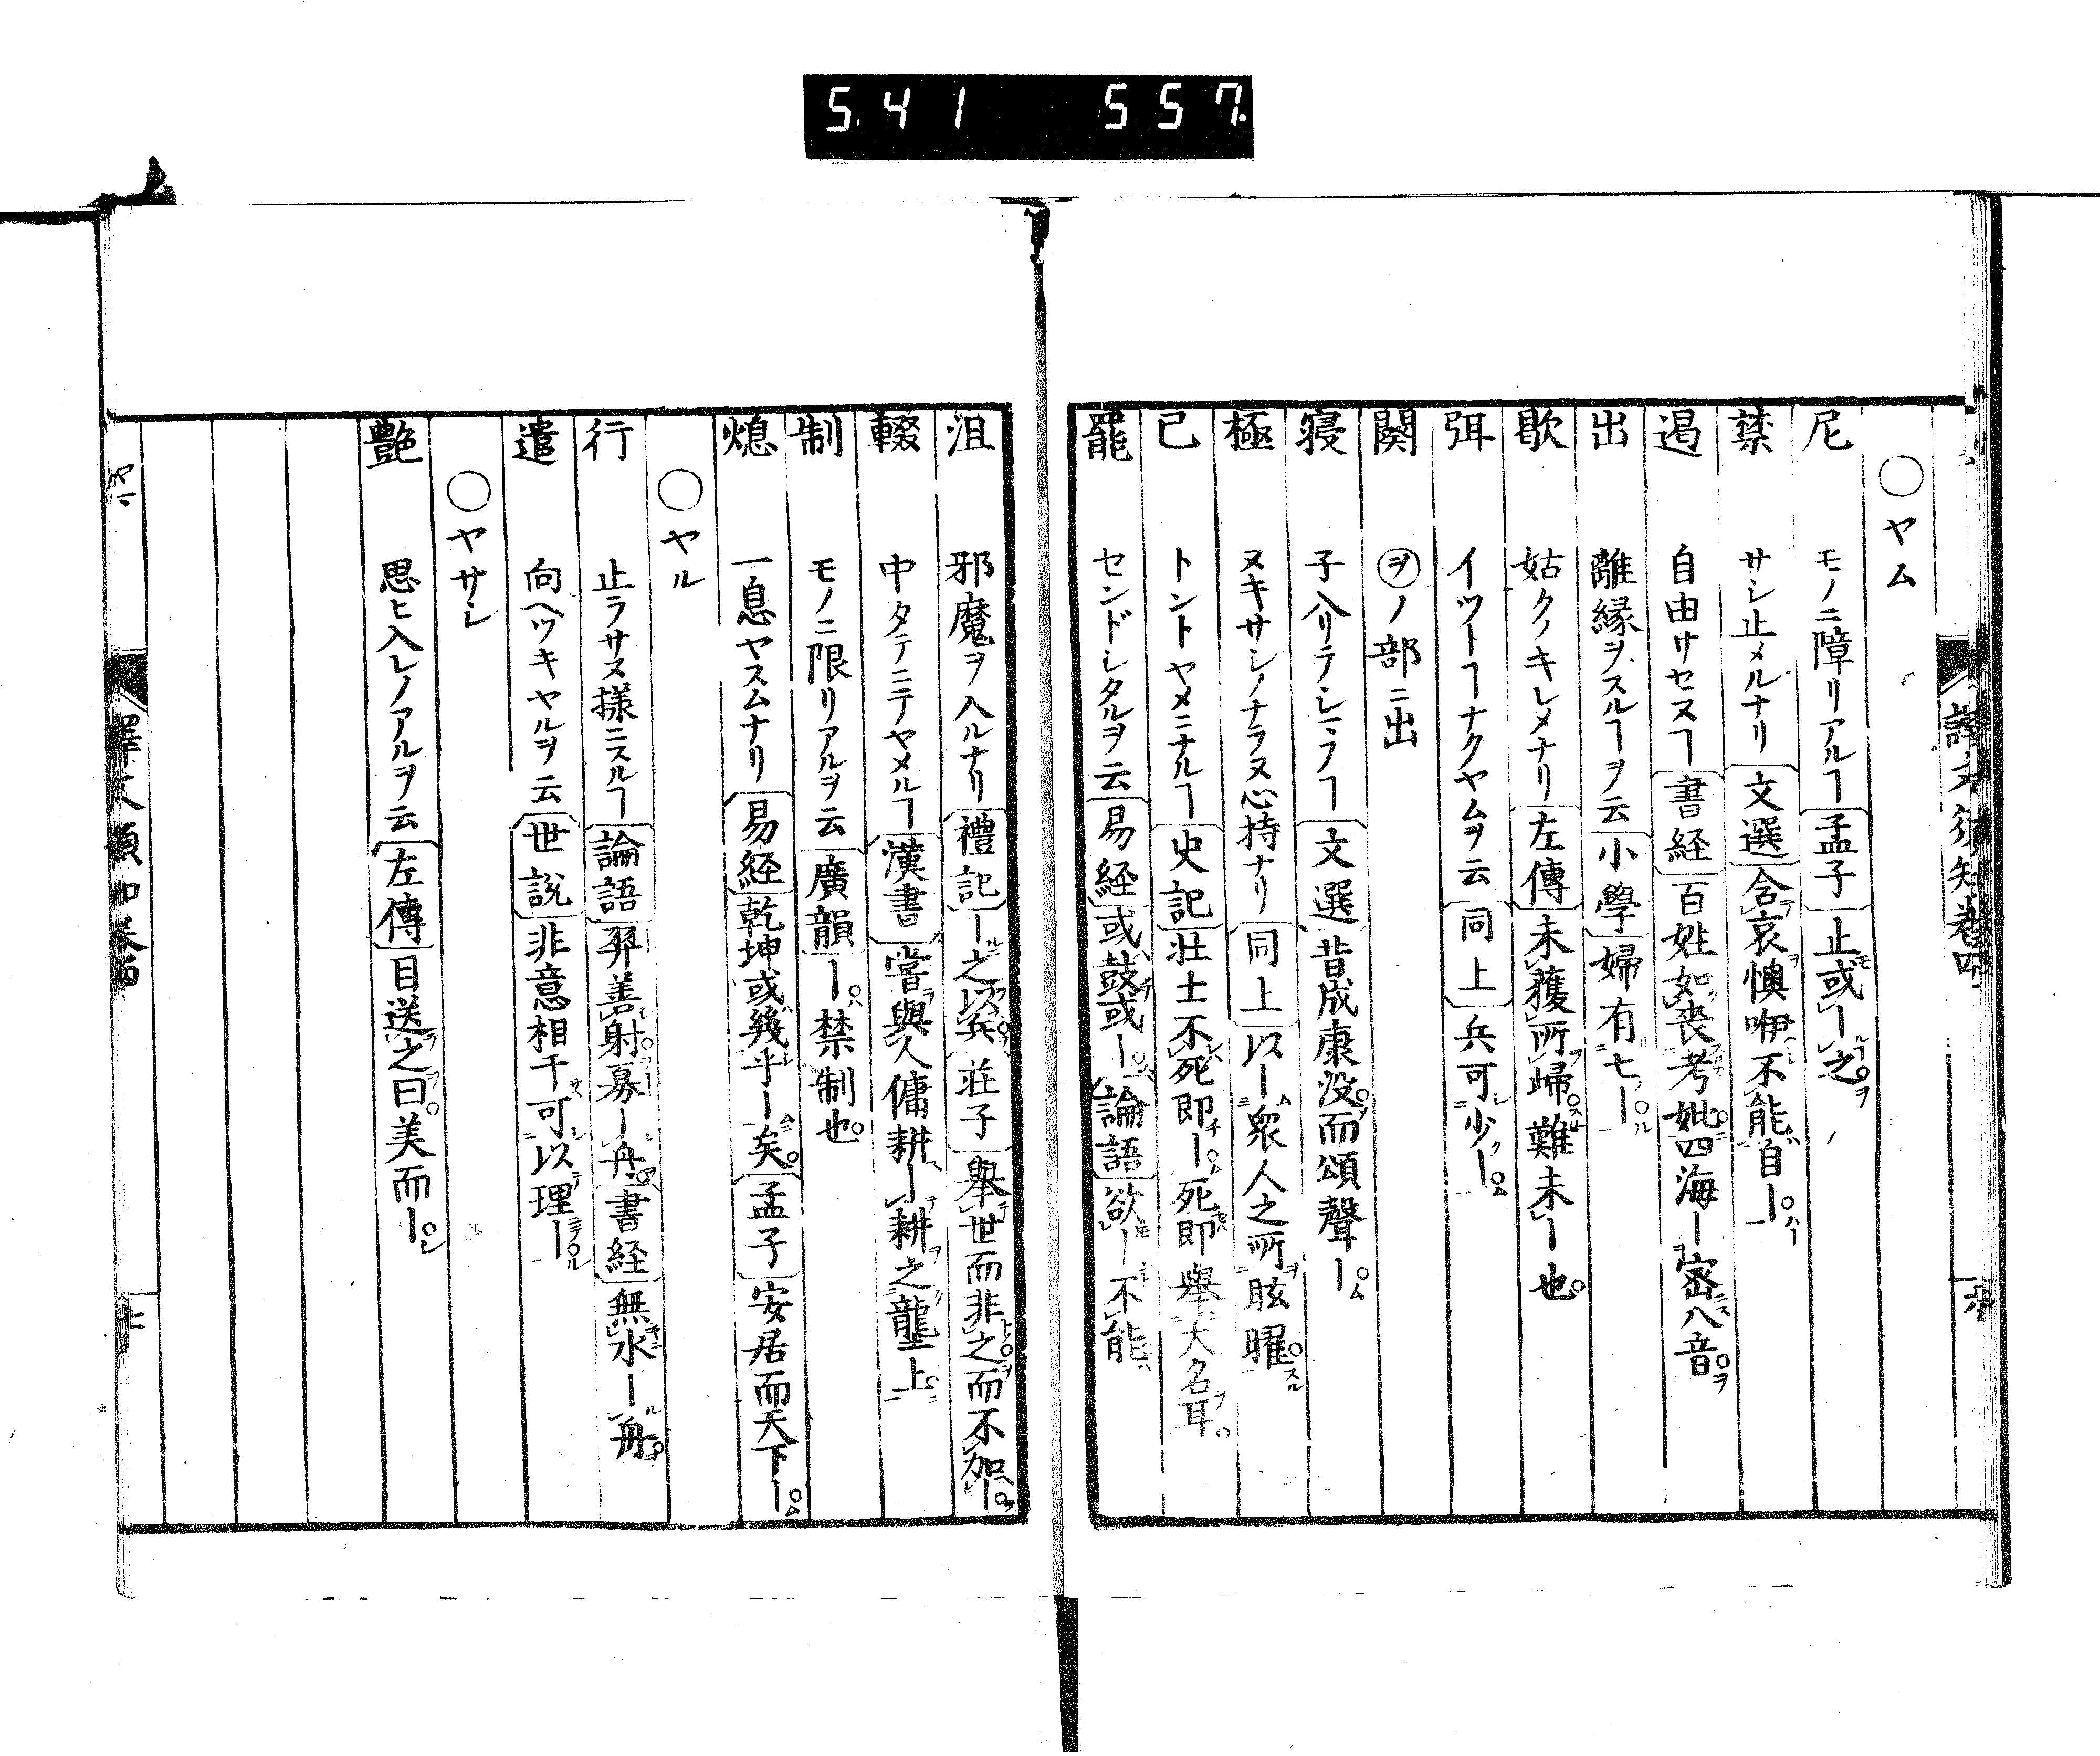 541 557
譯文須知卷四
○ヤム
尼 モノニ障リアルヿ 孟子 止或ー之
禁 サシ止メルナリ 文選 含哀懊咿不能自ー
遏 自由サセヌヿ 書経 百姓如喪考妣四海ー密八音
出 離縁ヲスルヿヲ云 小學 婦有七ー
歇 姑クノキレメナリ 左傳 未獲所歸難未ー也
弭 イツトナクヤムヲ云 同上 兵可少ー
闋 ヲノ部ニ出
寝 子入リラシマフヿ 文選 昔成康没而頌聲ー
極 ヌキサシノナラヌ心持ナリ 同上 以ー衆人之所眩曜
已 トントヤメニナルヿ 史記 壮士不死即ー死即舉大名耳
罷 センドシタルヲ云 易経 或鼓或ー 論語 欲ー不能
沮 邪魔ヲ入ルナリ 禮記 ー之以兵 荘子 舉世而非之而不加ー
輟 中タテニテヤメルヿ 漢書 嘗與人傭耕ー耕之壟上
制 モノニ限リアルヲ云 廣韻 ー禁制也
熄 一息ヤスムナリ 易経 乾坤或幾乎ー矣 孟子 安居而天下ー
○ヤル
行 止ラサヌ様ニスルヿ 論語 羿善射奡ー舟 書経 無水ー舟
遣 向ヘツキヤルヲ云 世説 非意相干可以理ー
○ヤサシ
艶 思ヒ入レノアルヲ云 左傳 目送之曰美而ー
譯文須知卷四